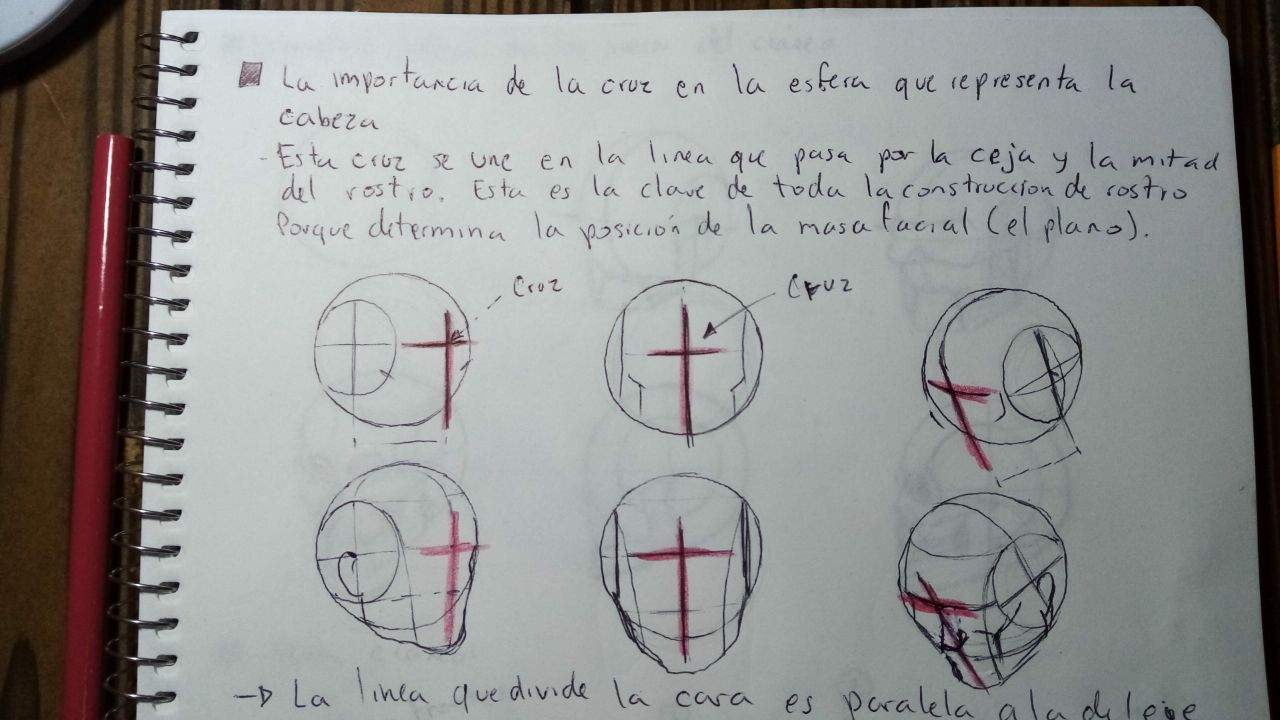 La importancia de la cruz en la esfera que representa la
cabeza
- Esta cruz se une en la linea que pasa por la ceja y la mitad
del rostro. Esta es la clave de toda la construccion de rostro
Porque determina la posición de la masa facial (el plano).
Cruz
Cruz
La linea que divide la cara es paralela a la del eje